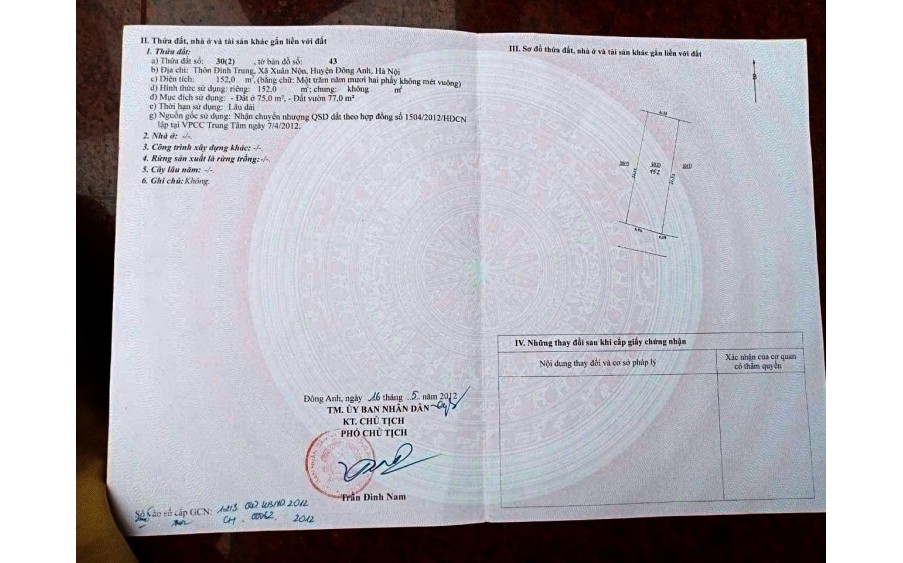 II. Thửa đất, nhà ở và tài sản khác gắn liền với đất
1. Thửa đất:
a) Thửa đất số: 30(2) , tờ bản đồ số: 43
b) Địa chỉ: Thôn Đình Trung, Xã Xuân Nộn, Huyện Đông Anh, Hà Nội
c) Diện tích: 152,0 m², (bằng chữ: Một trăm năm mươi hai phẩy không mét vuông)
d) Hình thức sử dụng: riêng: 152,0 m²; chung: không m²
đ) Mục đích sử dụng: - Đất ở 75,0 m², - Đất vườn 77,0 m²
e) Thời hạn sử dụng: Lâu dài
g) Nguồn gốc sử dụng: Nhận chuyển nhượng QSD đất theo hợp đồng số 1504/2012/HĐCN
lập tại VPCC Trung Tâm ngày 7/4/2012.
2. Nhà ở: -/-
3. Công trình xây dựng khác: -/-
4. Rừng sản xuất là rừng trồng: -/-
5. Cây lâu năm: -/-
6. Ghi chú: Không.
Đông Anh, ngày 16 tháng 5 năm 2012
TM. ỦY BAN NHÂN DÂN
KT. CHỦ TỊCH
PHÓ CHỦ TỊCH
Trần Đình Nam
Số vào sổ cấp GCN:
CH 00062 2012
III. Sơ đồ thửa đất, nhà ở và tài sản khác gắn liền với đất
B
30(2)
152
IV. Những thay đổi sau khi cấp giấy chứng nhận
Nội dung thay đổi và cơ sở pháp lý
Xác nhận của cơ quan
có thẩm quyền